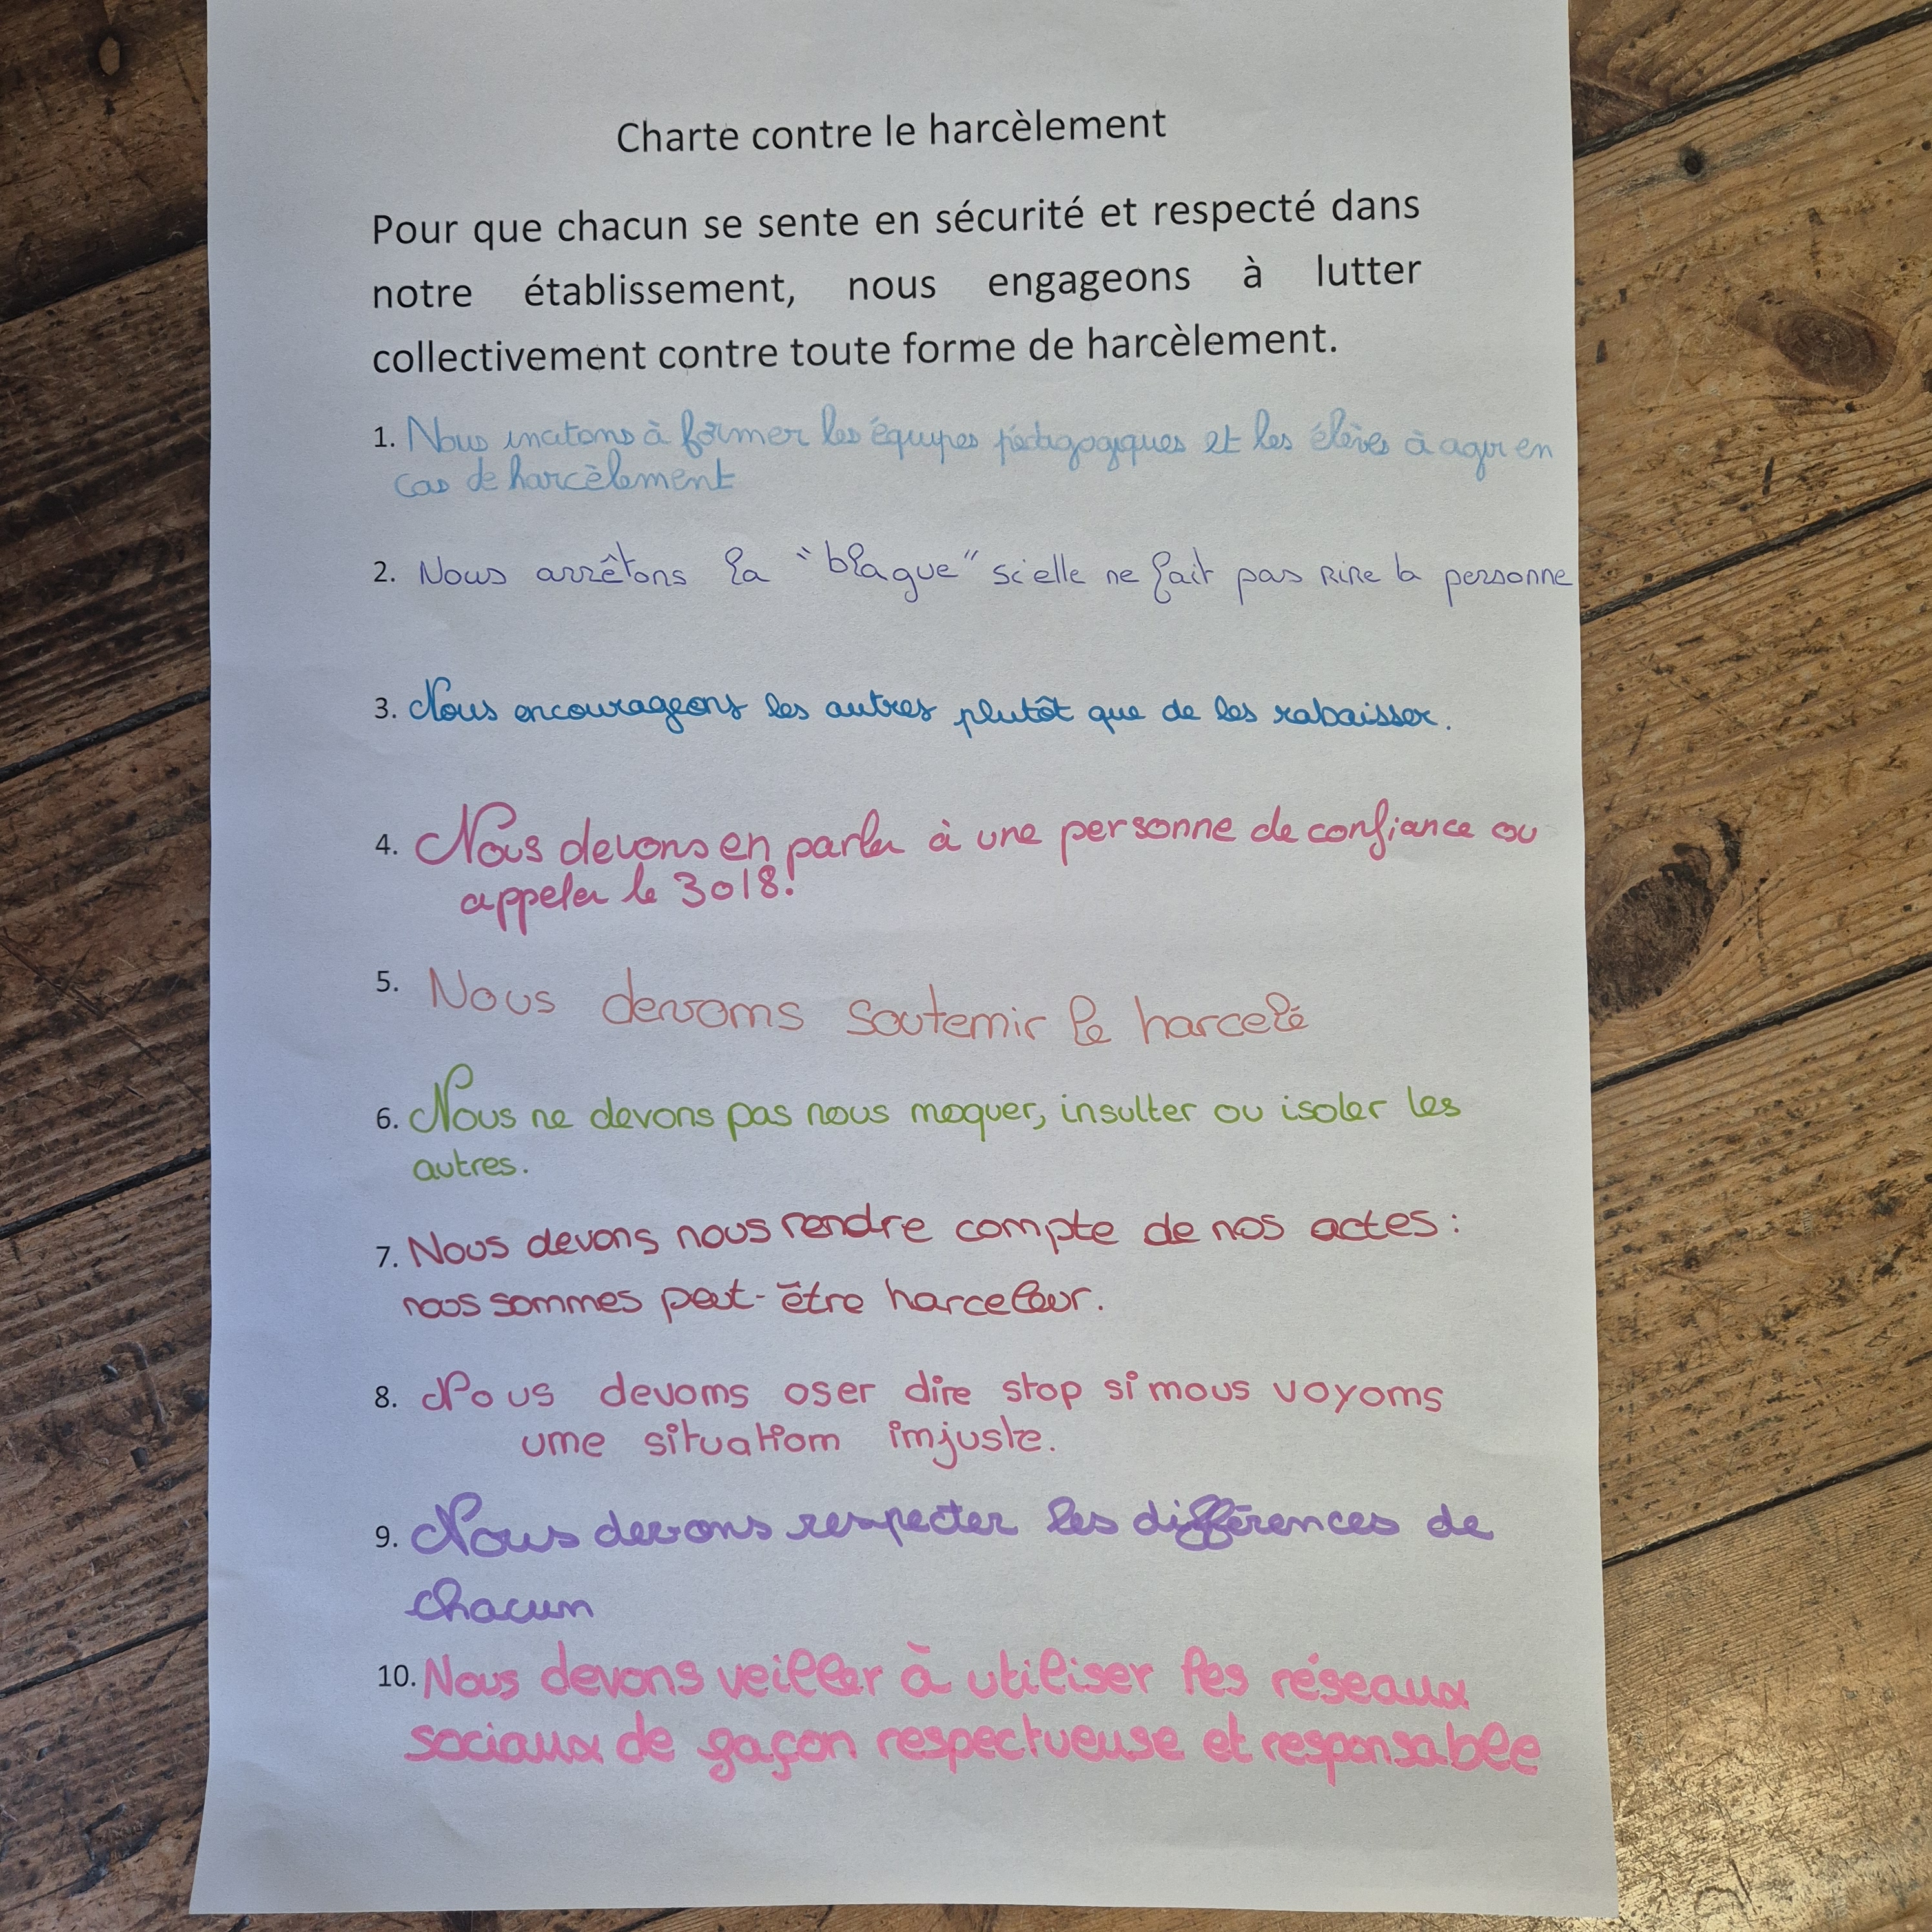 Charte contre le harcèlement
Pour que chacun se sente en sécurité et respecté dans
notre établissement, nous engageons à lutter
collectivement contre toute forme de harcèlement.
1. Nous incitons à former les équipes pédagogiques et les élèves à agir en
cas de harcèlement
2. Nous arrêtons la "blague" si elle ne fait pas rire la personne
3. Nous encourageons les autres plutôt que de les rabaisser.
4. Nous devons en parler à une personne de confiance ou
appeler le 3018!
5. Nous devons soutenir le harcelé
6. Nous ne devons pas nous moquer, insulter ou isoler les
autres.
7. Nous devons nous rendre compte de nos actes :
nous sommes peut-être harceleur.
8. Nous devons oser dire stop si nous voyons
une situation injuste.
9. Nous devons respecter les différences de
chacun
10. Nous devons veiller à utiliser les réseaux
sociaux de façon respectueuse et responsable